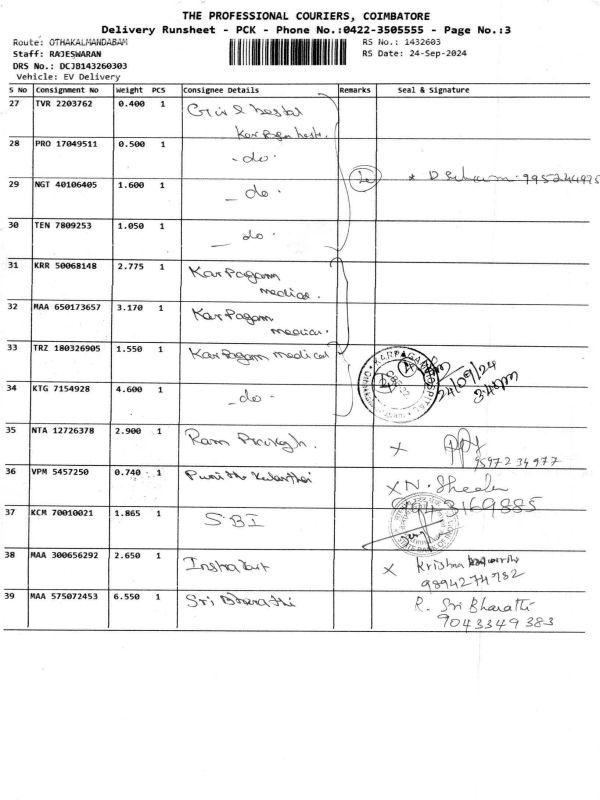 THE PROFESSIONAL COURIERS, COIMBATORE
Delivery Runsheet - PCK - Phone No.:0422-3505555 - Page No.:3
Route: OTHAKALMANDABAM RS No.: 1432603
Staff: RAJESWARAN RS Date: 24-Sep-2024
DRS No.: DCJB143260303
Vehicle: EV Delivery
S No Consignment No Weight PCS Consignee Details Remarks Seal & Signature
27 TVR 2203762 0.400 1
28 PRO 17049511 0.500 1 - do -
29 NGT 40106405 1.600 1 - do -
30 TEN 7809253 1.050 1 - do -
31 KRR 50068148 2.775 1 Karpagam
medical.
32 MAA 650173657 3.170 1 Karpagam
medical.
33 TRZ 180326905 1.550 1 Karpagam medical
24/09/24
3:40pm
34 KTG 7154928 4.600 1 - do -
35 NTA 12726378 2.900 1 Ram Prakash. X
95972 34977
36 VPM 5457250 0.740 1 X N.
9943169885
37 KCM 70010021 1.865 1 SBI
38 MAA 300656292 2.650 1 X Krishna
9894274782
39 MAA 575072453 6.550 1 Sri Bharathi R. Sri Bharathi
9043349383